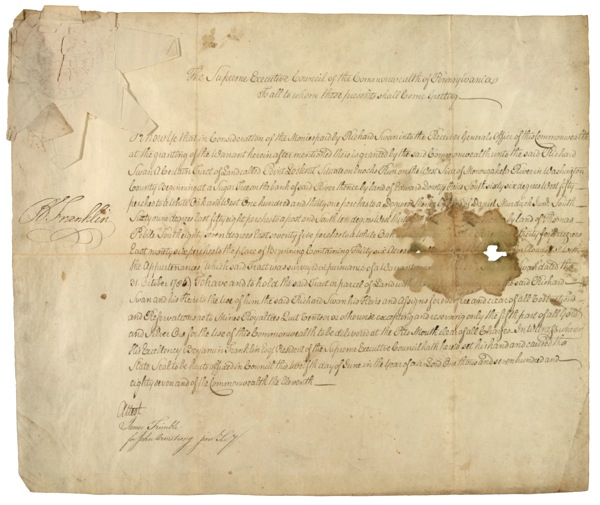 The Supreme Executive Council of the Commonwealth of Pennsylvania
To all to whom these presents shall Come Greeting
Know Ye that in Consideration of the Monies paid by Richard Swan into the Receiver Generals Office of this Commonwealth
at the granting of the Warrant herein after mentioned there is granted by the said Commonwealth unto the said Richard
Swan A Certain Tract of Land called Situate on Run on the West Side of Monongahela River in Washington
County Beginning at a Sugar Tree on the bank of said River thence by land of Edward South sixty six degrees West fifty
perches to a White Oak and West One hundred and thirty one perches to a Dogwood thence by land of Daniel South
Sixty nine degrees East fifty eight perches to a post and South by land of Thomas
South eighty seven degrees East seventy five perches to a White Oak degrees
East ninety six perches to the place of Beginning Containing thirty six Acres with
the Appurtenances which said Tract was surveyed in pursuance of a Warrant dated the
31 October 1786 To have and to hold the said Tract or parcel of Land said Richard
Swan and his Heirs to the use of him the said Richard Swan his Heirs and Assigns for ever free and clear of all Restrictions
and Reservations as to Mines Royalties Quit Rents or otherwise excepting and reserving only the fifth part of all Gold
and Silver Ore for the use of this Commonwealth to be delivered at the Pits Mouth clear of all Charges In Witness whereof
His Excellency Benjamin Franklin Esqr President of the Supreme Executive Council hath hereto set his hand and caused the
State Seal to be hereto affixed in Council this twelfth day of June in the Year of our Lord One thousand seven hundred and
eighty seven and of the Commonwealth the Eleventh
B Franklin
Attest
James Trimble
for John Armstrong junr Secy